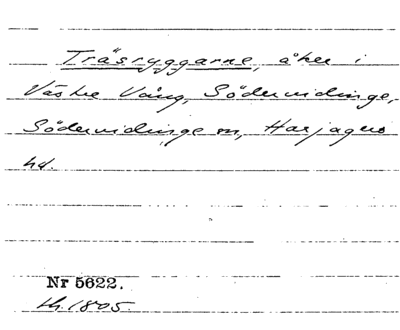 Träsryggarne, åker i
Västra Vång, Södervidinge,
Södervidinge sn, Harjagers
hd.
Nr 5622.
th. 1805.